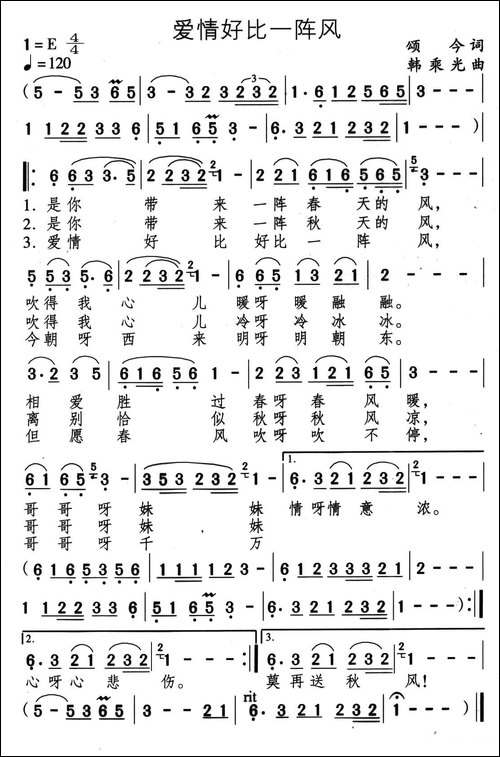 爱情好比一阵风
1=E 4/4
颂今词
♩=120
韩乘光曲
(5-535 6 65|3·323 3 23 2|6·6 1 2 5 6 5|
1 1 2 2 3 3 6|5 1 6 5 5|6·3 2 1 2 3 2|1---)|
‖:6 6 3 3·5|2 2 3 2 1-|2 2 1 6 1 6 5 6|3---|
1.是你 带来一阵春天的风,
2.是你 带来一阵秋天的风,
3.爱情 好比好比一阵风,
5 5 3 5·6|2 2 3 2 1-|6 6 5 1 3 2 1|2---|
吹得我心儿暖呀暖融融。
吹得我心儿冷呀冷冰冰。
今朝呀西来明呀明朝东。
3·2 3 5|6 1 6 5 6-|2 2 3 1 2 1 3 5|3---|
相爱胜过春呀春风暖,
离别恰似秋呀秋风凉,
但愿春风吹呀吹不停,
1.
6 6 5 3-|3 5 3 2 1-|6·3 2 1 2 3 2|1---|
哥哥呀妹妹情呀情意浓。
哥哥呀妹妹
哥哥呀千万
(6 1 6 5 3 5 6|1 1 1 1 1 2 3|1 2 1 6 5 3 5 6|
1 1 2 2 3 3 6|5 1 6 5 5|6·3 2 1 2 3 2|1---):‖
2.
3.
6·3 2 1 2 3 2|1---:‖6·3 2 1 2 3 2|1---|
心呀心悲伤。 莫再送秋风!
rit
(5-535 6 5|3-3 2 2 1|6·3 2 1 2 3 2|1---)‖